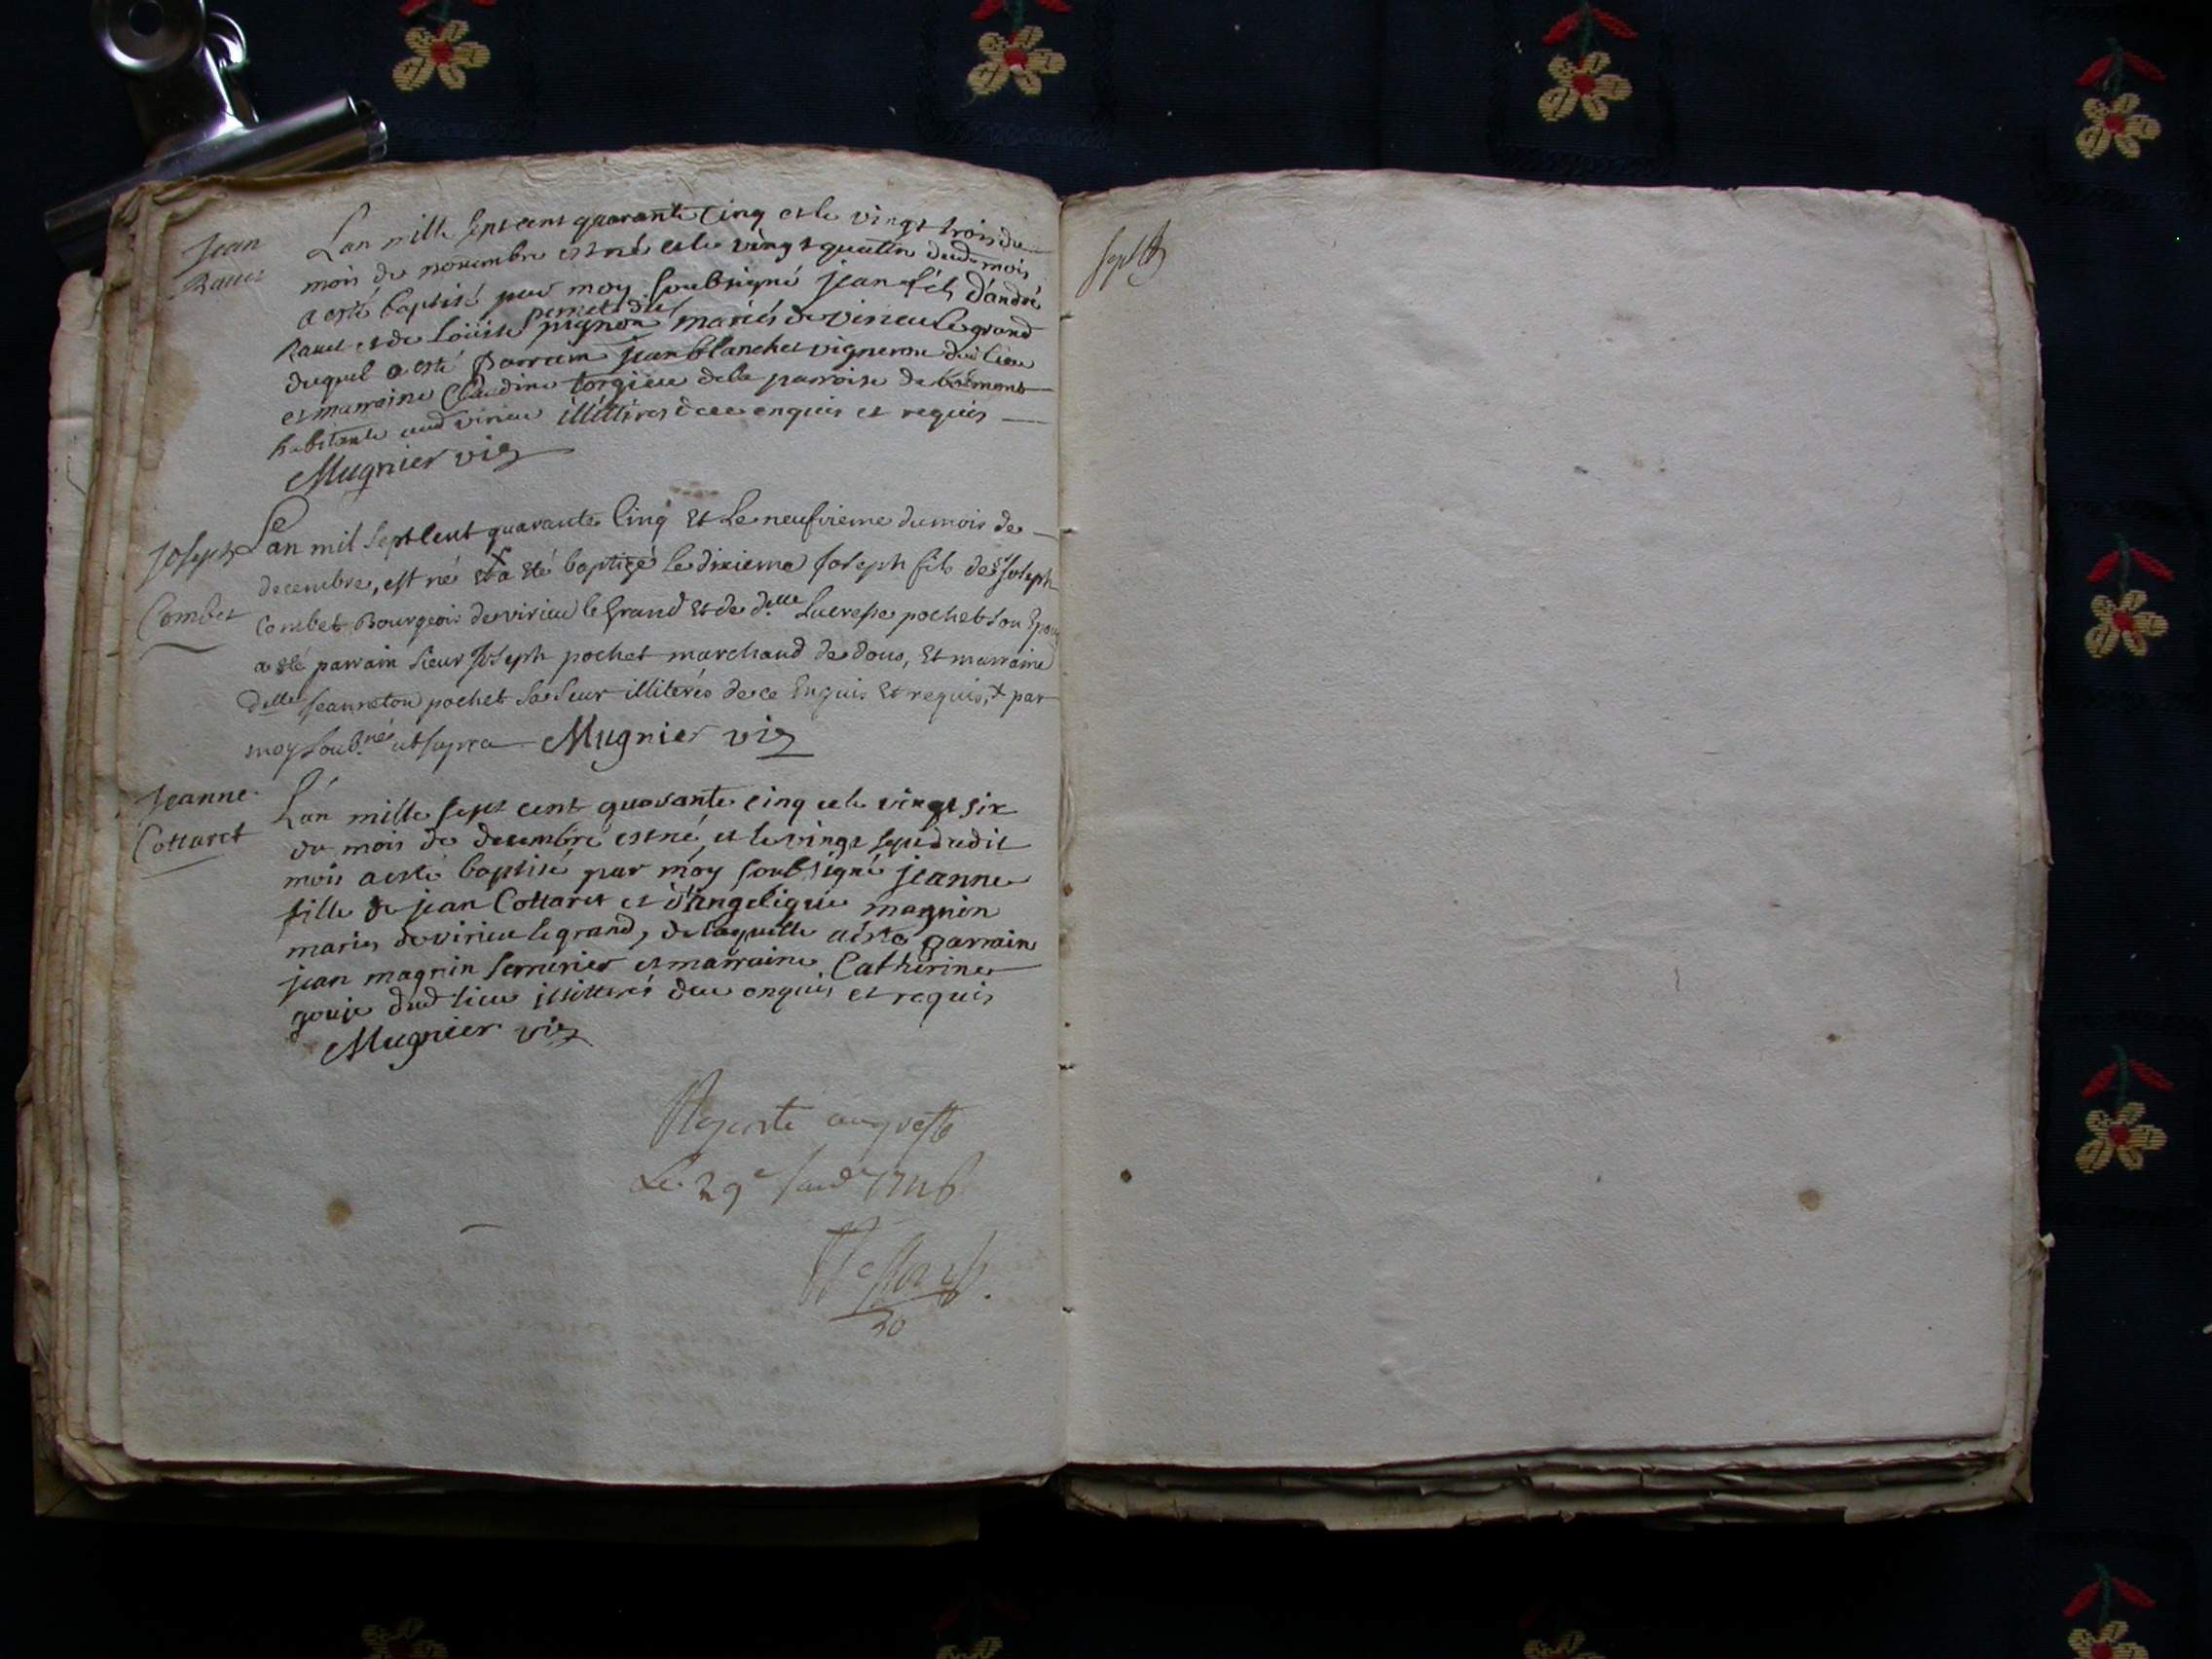 Jean
Lan mille sept cent quarante cinq et le vingt trois du
mois de novembre est né et le vingt quatre dud. mois
a esté baptisé par moy soubsigné jean fils d'andré
et de Loüise pignon mariés de virieu le grand
duquel a esté parrain jean blanchet vigneron dud. lieu
et marraine Claudine torgieu de la parroise de
habitante aud virieu illitires de ce enquis et requis
Mugnier vic
Joseph
Combet
Lan mil Sept Cent quarante Cinq Et Le neufvieme du mois de
decembre, est né Et a été baptizé le dixieme Joseph fils de Sr Joseph
Combet Bourgeois de virieu le Grand Et de delle Lucresse pochet son Epou
a eté parrain sieur Joseph pochet marchand de dons, Et marraine
Delle Jeanneton pochet sa seur illiterés de ce Enquis Et requis, + par
moy soub.né ut supra Mugnier vic
Jeanne
Cottaret
L'an mille sept cent quarante cinq et le vingt six
du mois de decembre est né, et le vingt sept dudit
mois a esté baptisé par moy soubsigné jeanne
fille de jean Cottaret et d'angelique magnin
mariés de virieu le grand, de laquelle a esté parrain
jean magnin serrurier et marraine Catherine
gouje dud lieu illitterés de ce enquis et requis
Mugnier vic
Le 29e
30